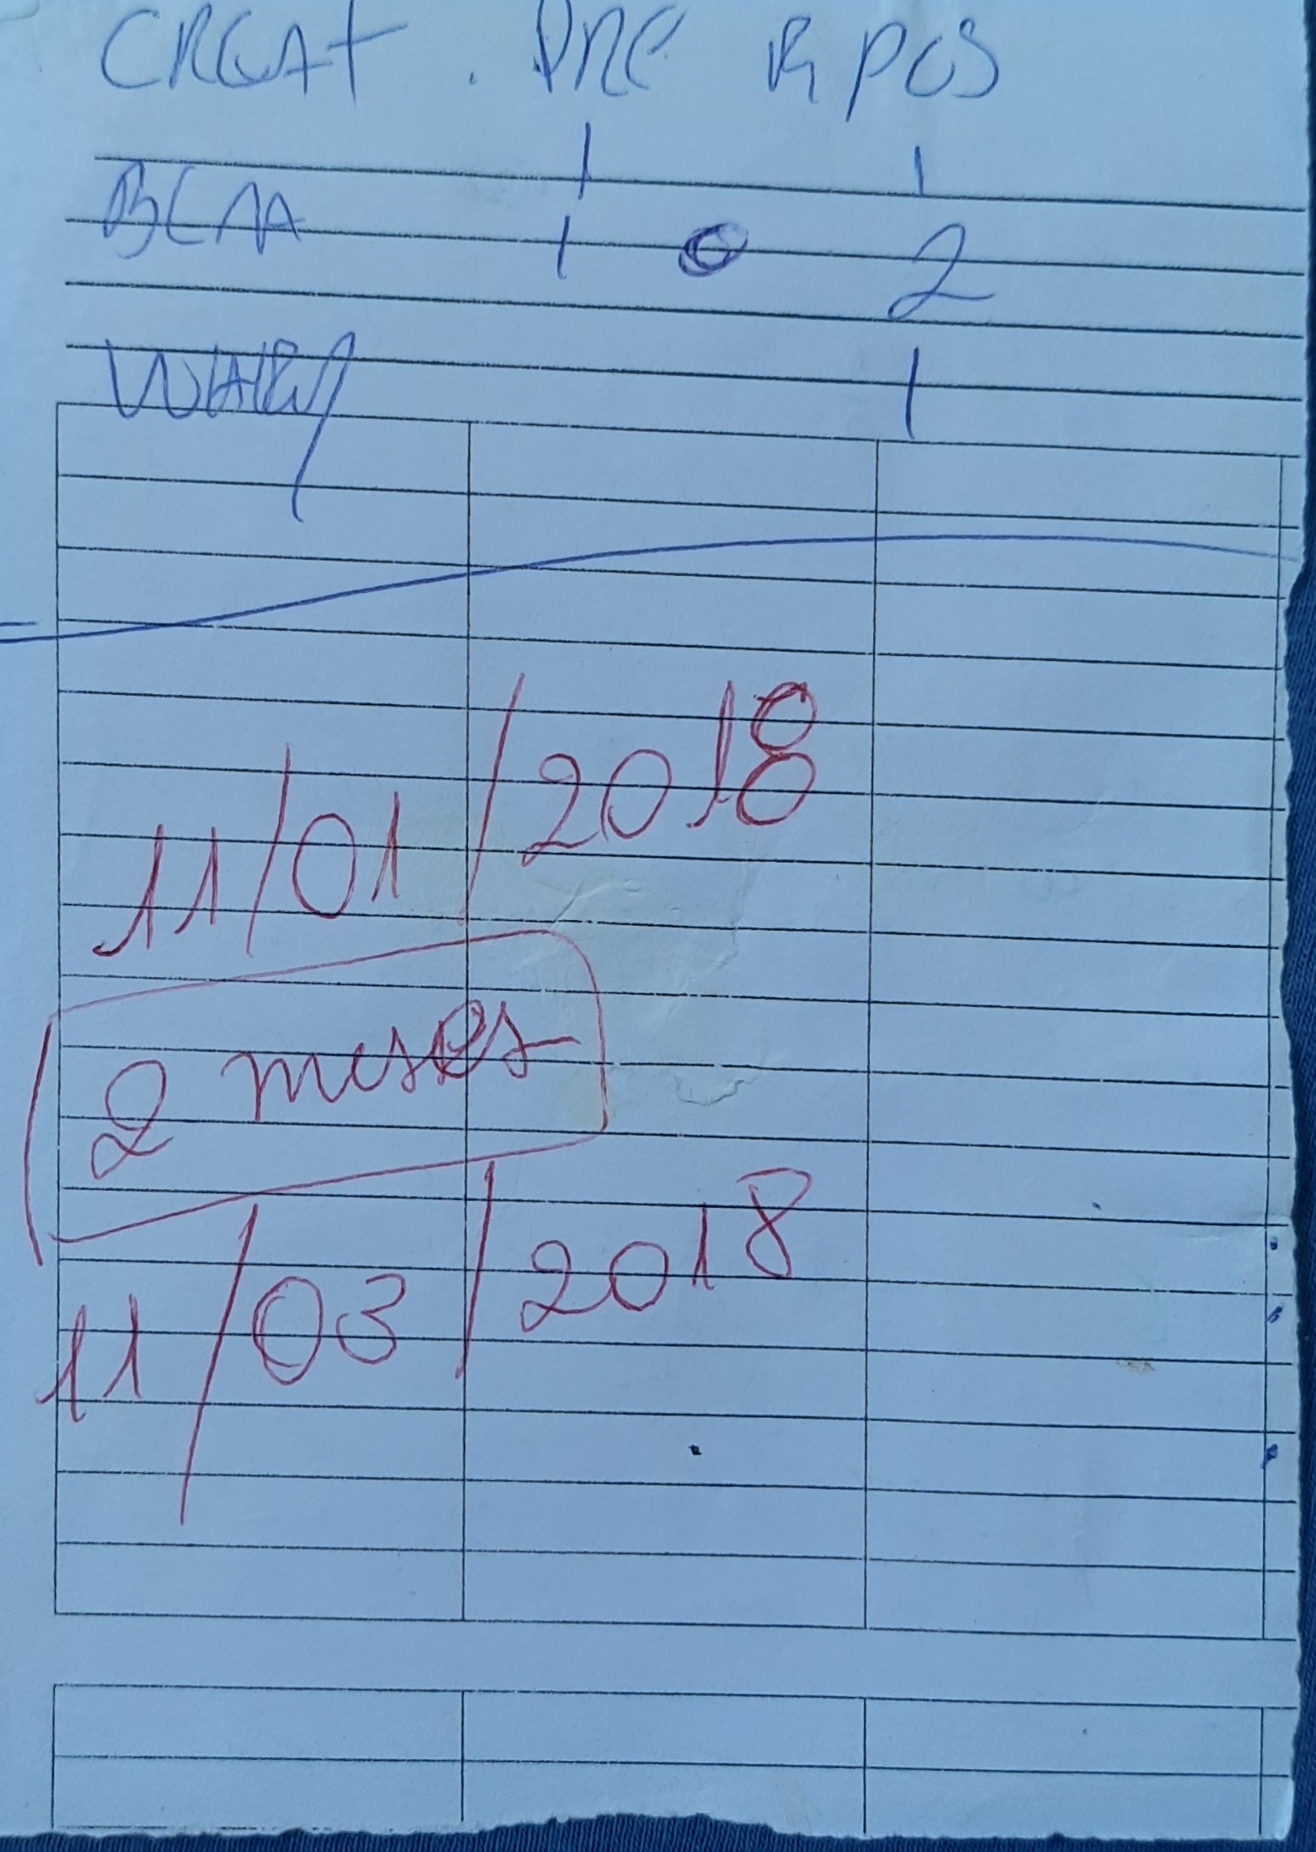 CREAT. PRE R POS
1 1
BCAA 1 0 2
WHEY 1
11/01/2018
2 meses
11/03/2018